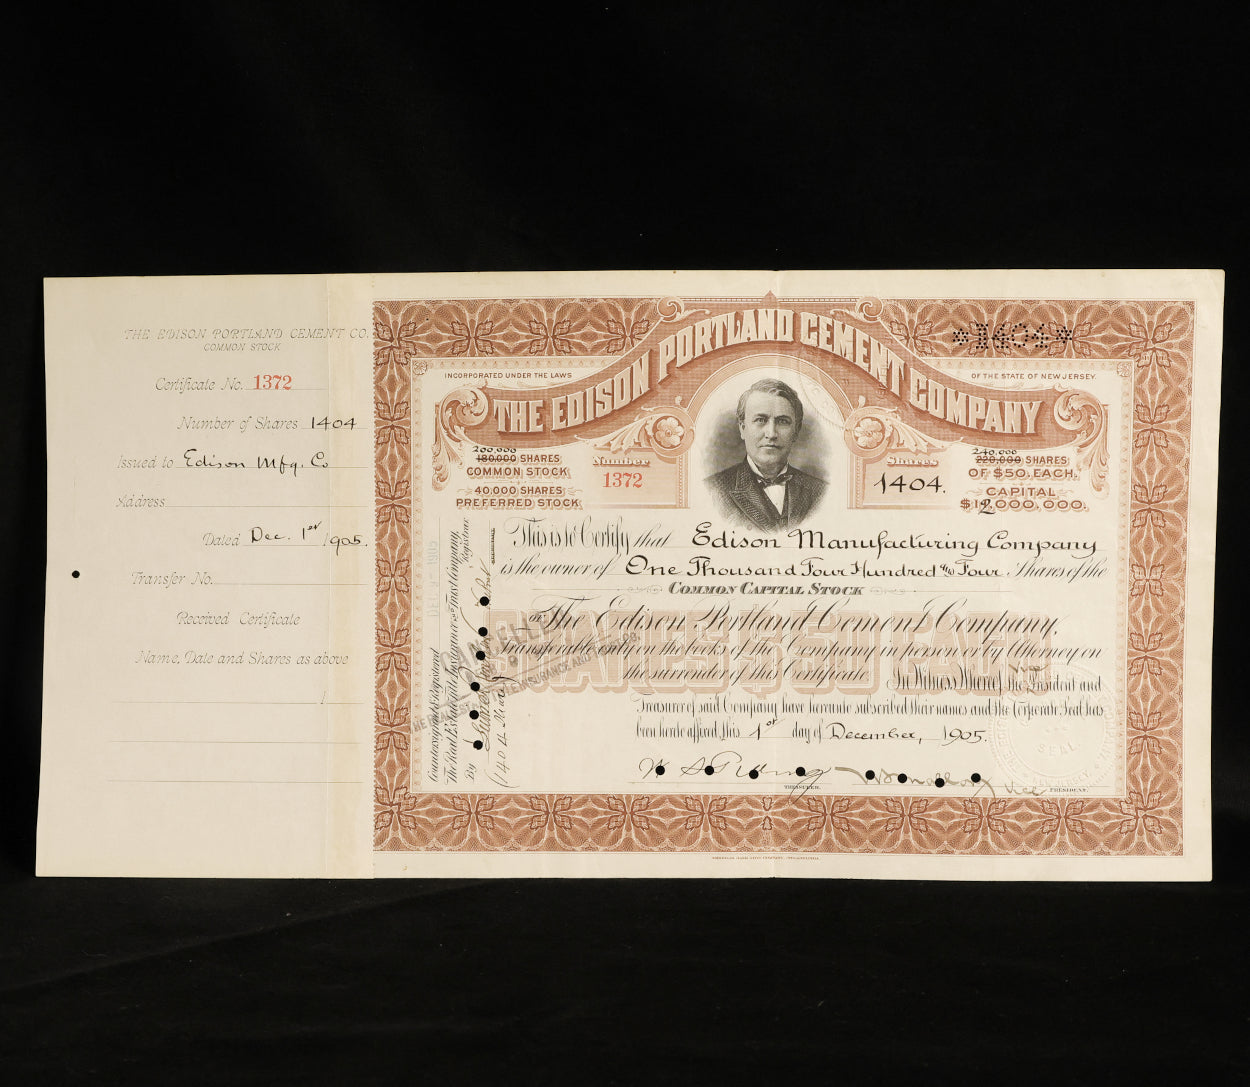 THE EDISON PORTLAND CEMENT CO.
COMMON STOCK
Certificate No. 1372
Number of Shares 1404
Issued to Edison Mfg. Co
Address
Dated Dec. 1st 1905.
Transfer No.
Received Certificate
Name, Date and Shares as above
1404
INCORPORATED UNDER THE LAWS
OF THE STATE OF NEW JERSEY.
THE EDISON PORTLAND CEMENT COMPANY
200,000
180,000 SHARES
COMMON STOCK
40,000 SHARES
PREFERRED STOCK
Number
1372
Shares
1404.
240,000
220,000 SHARES
OF $50. EACH.
CAPITAL
$12,000,000.
This is to Certify that Edison Manufacturing Company
is the owner of One Thousand Four Hundred and Four Shares of the
COMMON CAPITAL STOCK
OF The Edison Portland Cement Company,
Transferable only on the books of the Company in person or by Attorney on
the surrender of this Certificate. In Witness Whereof the Vice President and
Treasurer of said Company have hereunto subscribed their names and the Corporate Seal has
been hereto affixed this 1st day of December, 1905.
SHARES $50 EACH
TREASURER.
Vice PRESIDENT.
Countersigned & Registered
The Real Estate Title Insurance & Trust Company,
Registrar
By
CANCELLED
SEAL
NEW JERSEY
AMERICAN BANK NOTE COMPANY, PHILADELPHIA.